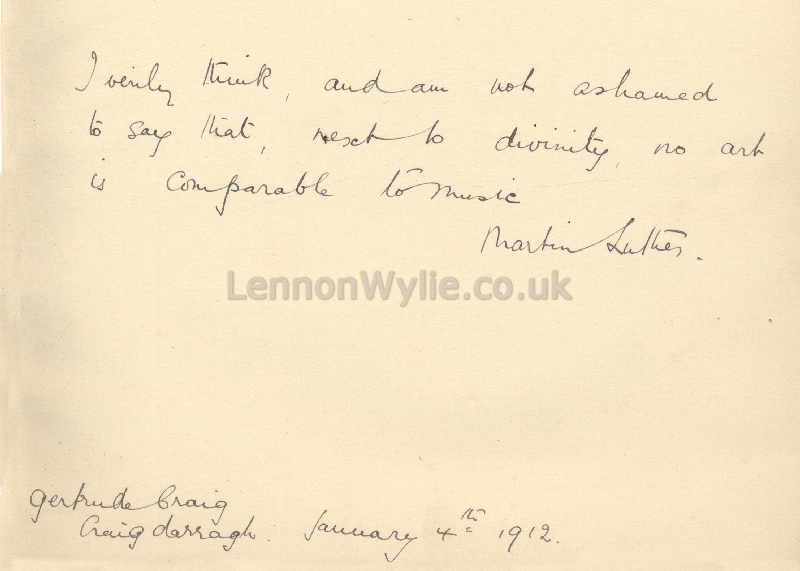 I verily think, and am not ashamed
to say that, next to divinity, no art
is comparable to music
Martin Luther.
LennonWylie.co.uk
Gertrude Craig
Craigdarragh. January 4th 1912.